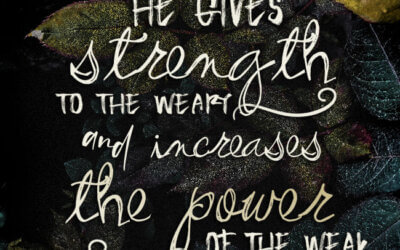 HE GIVES
strength
TO THE WEARY,
and increases
the power
OF THE WEAK